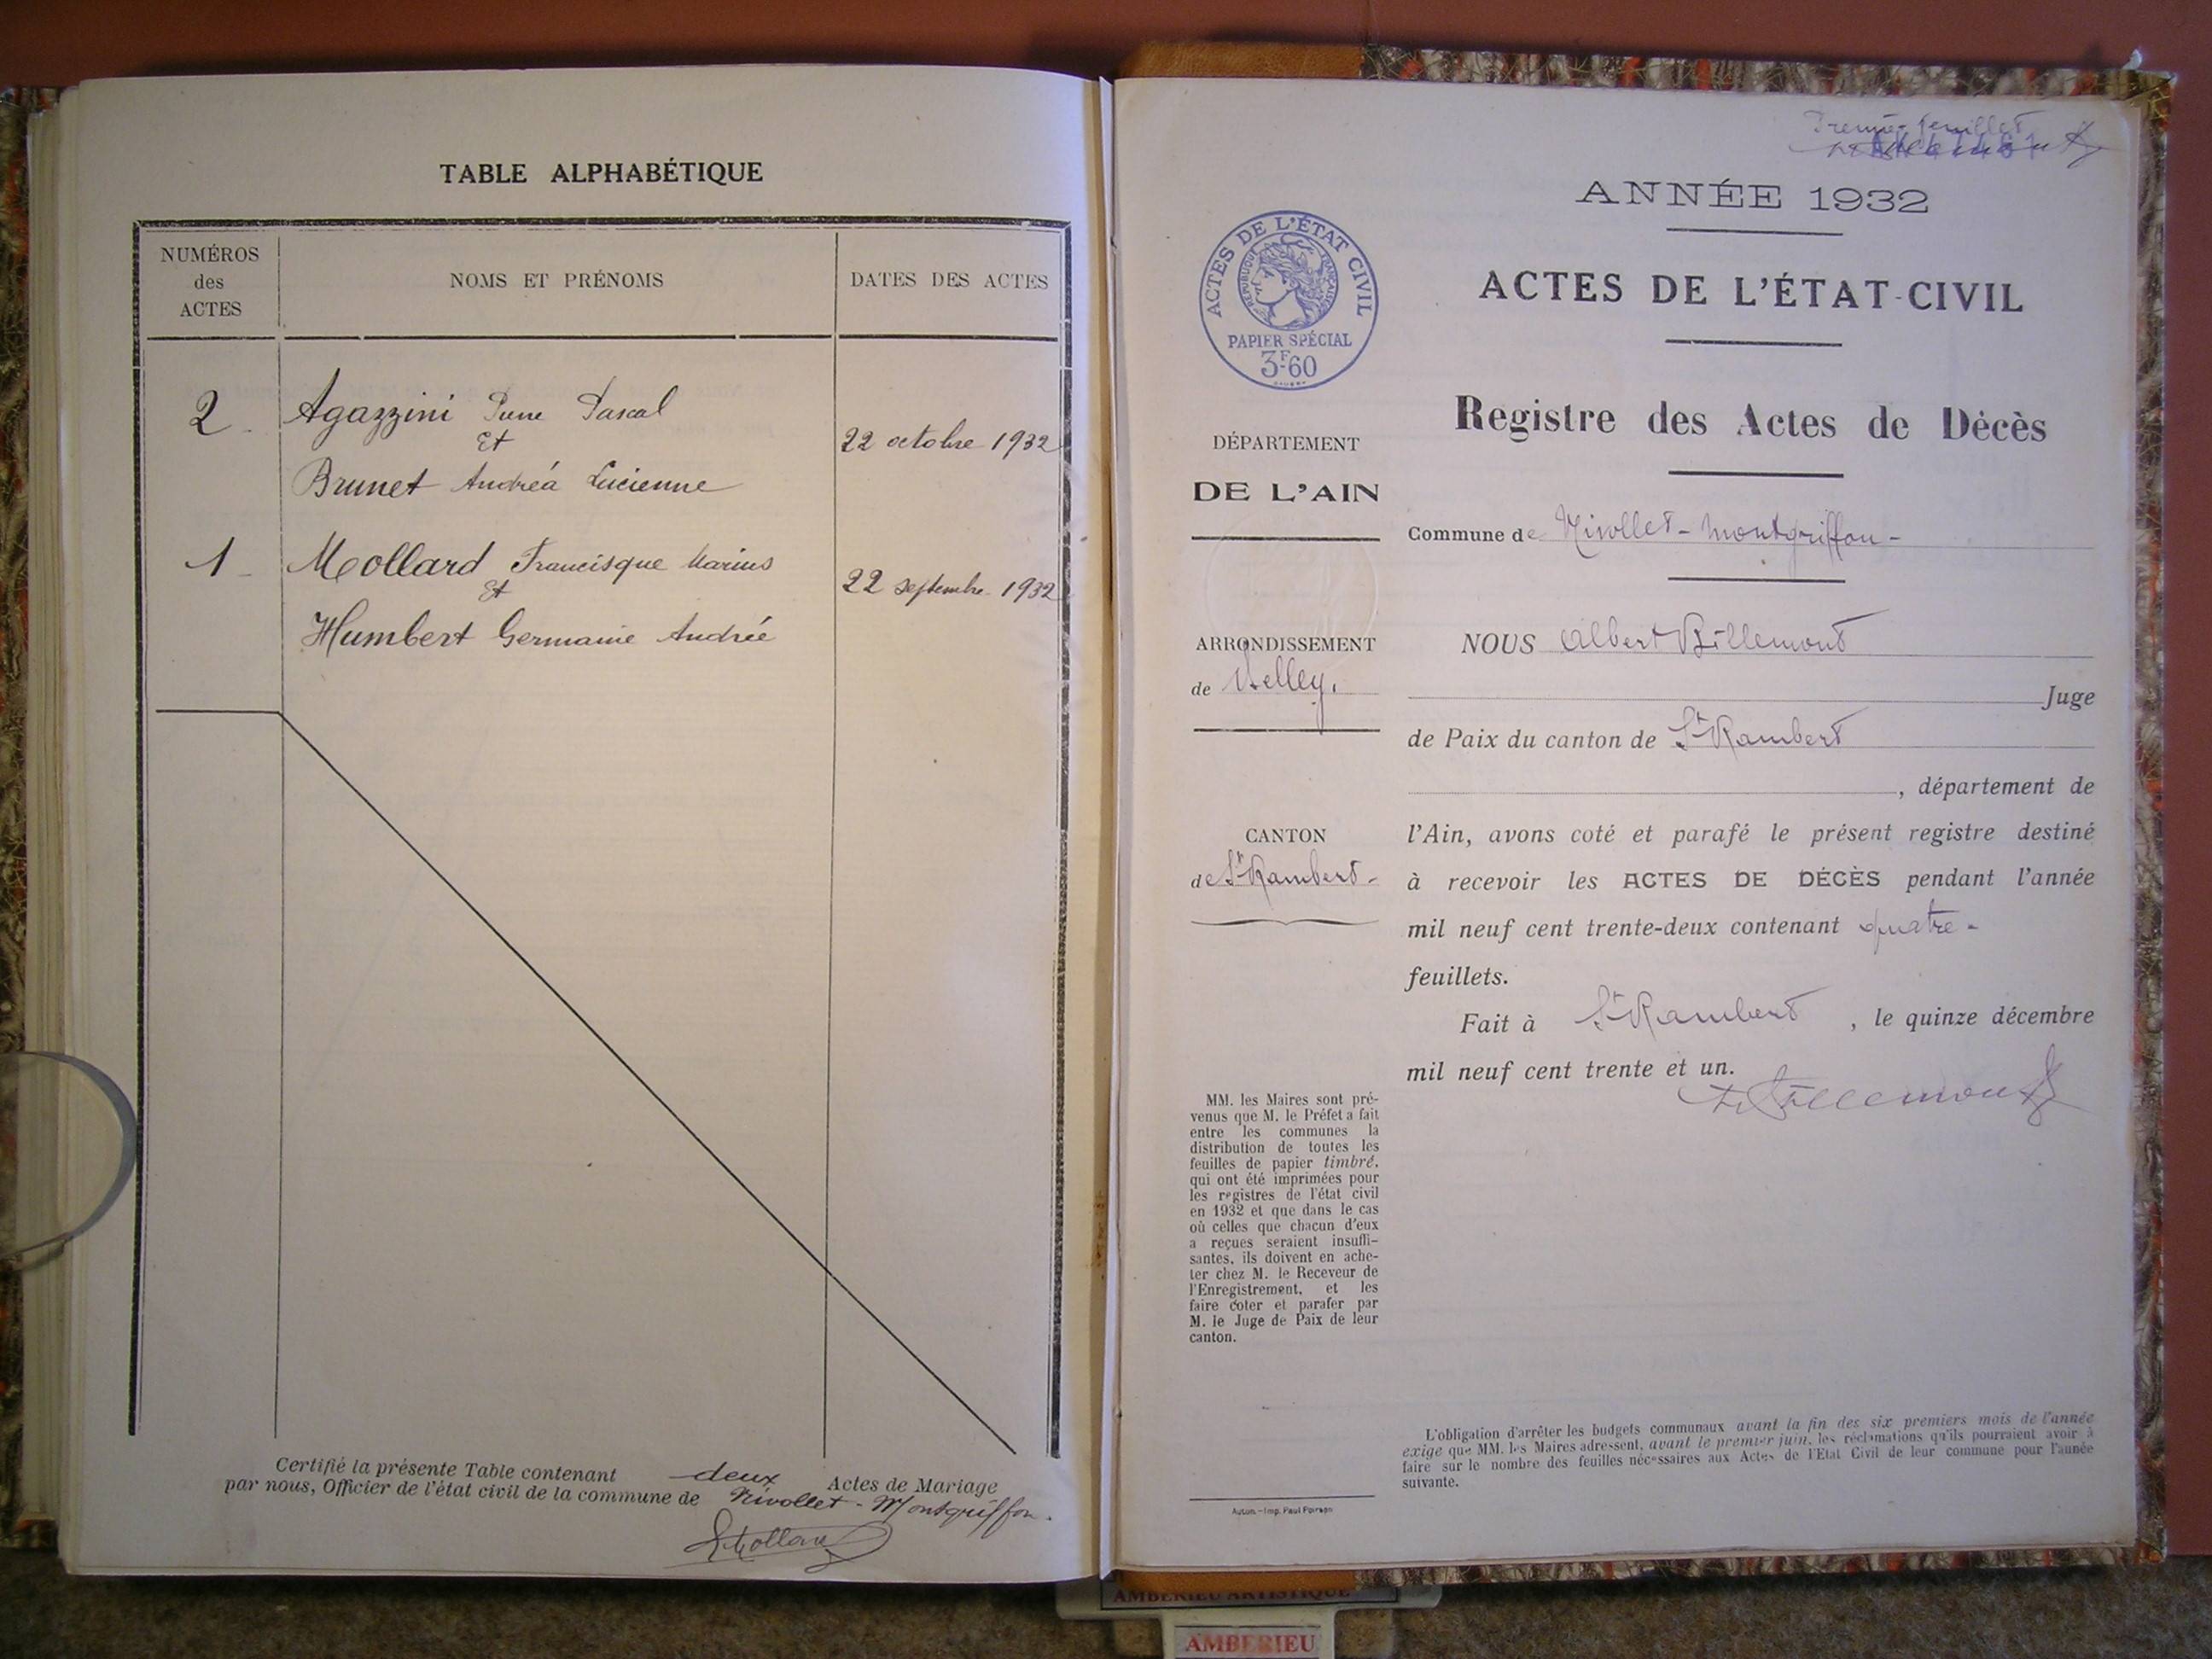 TABLE ALPHABÉTIQUE
NUMÉROS
des
ACTES
NOMS ET PRÉNOMS
DATES DES ACTES
2
Agazzini Pierre Pascal
Et
Brunet Andréa Lucienne
22 octobre 1932
1
Mollard Francisque Marius
Et
Humbert Germaine Andrée
22 septembre 1932
Certifié la présente Table contenant deux Actes de Mariage
par nous, Officier de l'état civil de la commune de Nivollet-Montgriffon.
Mollard
feuillet
ANNÉE 1932
ACTES DE L'ÉTAT-CIVIL
Registre des Actes de Décès
ACTES DE L'ÉTAT CIVIL
RÉPUBLIQUE FRANÇAISE
PAPIER SPÉCIAL
3F60
DÉPARTEMENT
DE L'AIN
ARRONDISSEMENT
de Belley.
CANTON
de St Rambert-
MM. les Maires sont pré-
venus que M. le Préfet a fait
entre les communes la
distribution de toutes les
feuilles de papier timbré,
qui ont été imprimées pour
les registres de l'état civil
en 1932 et que dans le cas
où celles que chacun d'eux
a reçues seraient insuffi-
santes, ils doivent en ache-
ter chez M. le Receveur de
l'Enregistrement, et les
faire coter et parafer par
M. le Juge de Paix de leur
canton.
Commune de Nivollet-Montgriffon-
NOUS Albert Billemont
Juge
de Paix du canton de St Rambert
, département de
l'Ain, avons coté et parafé le présent registre destiné
à recevoir les ACTES DE DÉCÈS pendant l'année
mil neuf cent trente-deux contenant quatre-
feuillets.
Fait à St Rambert, le quinze décembre
mil neuf cent trente et un.
Billemont
L'obligation d'arrêter les budgets communaux avant la fin des six premiers mois de l'année
exige que MM. les Maires adressent, avant le premier juin, les réclamations qu'ils pourraient avoir à
faire sur le nombre des feuilles nécessaires aux Actes de l'Etat Civil de leur commune pour l'année
suivante.
AMBERIEU ARTISTIQUE
AMBERIEU